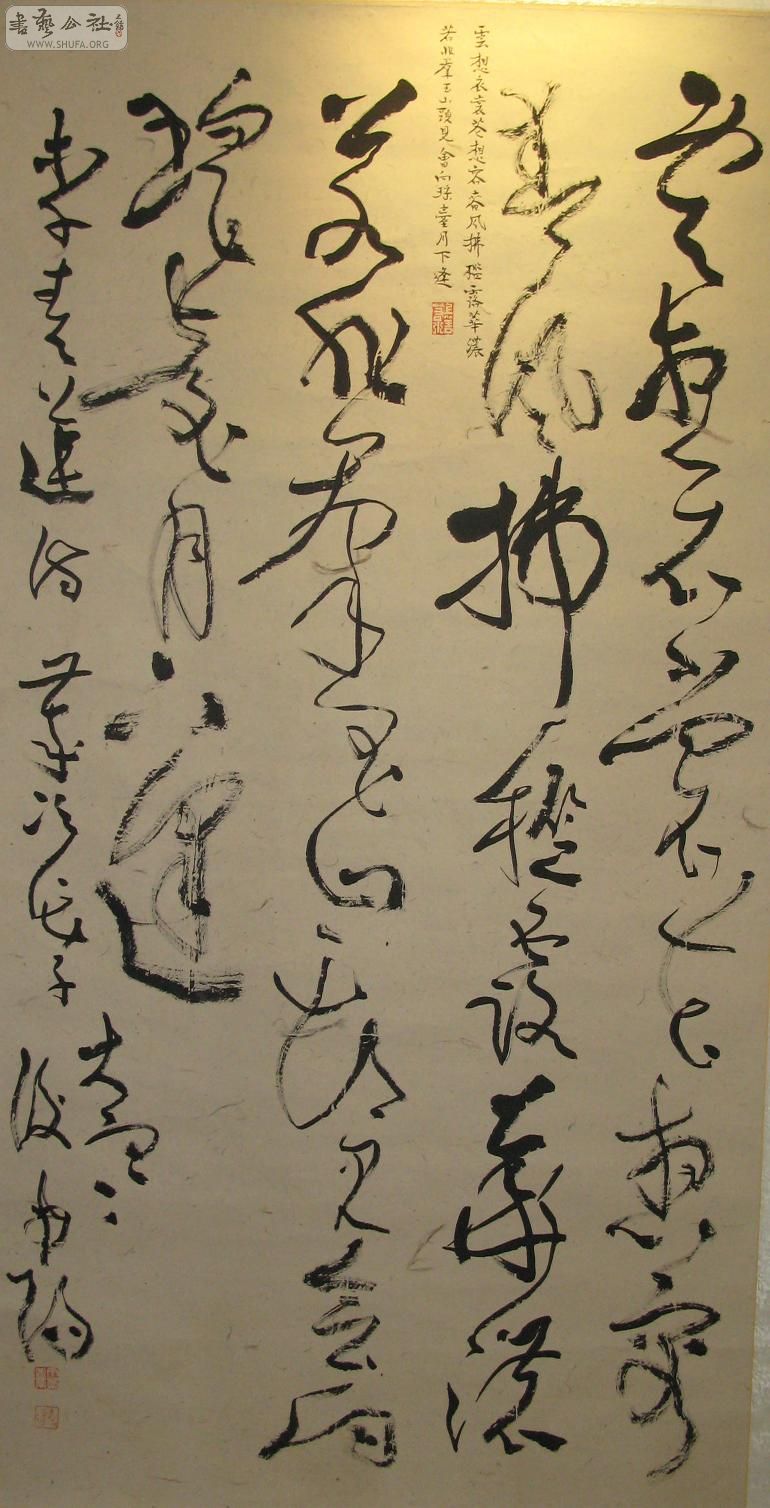 書藝公社
WWW.SHUFA.ORG
雲想衣裳花想容
春風拂檻露華濃
雲想衣裳花想容春風拂檻露華濃
若非羣玉山頭見會向瑤臺月下逢
若非羣玉山頭見會向
瑤臺月下逢
李青蓮詩歲次戊子
大雪
後